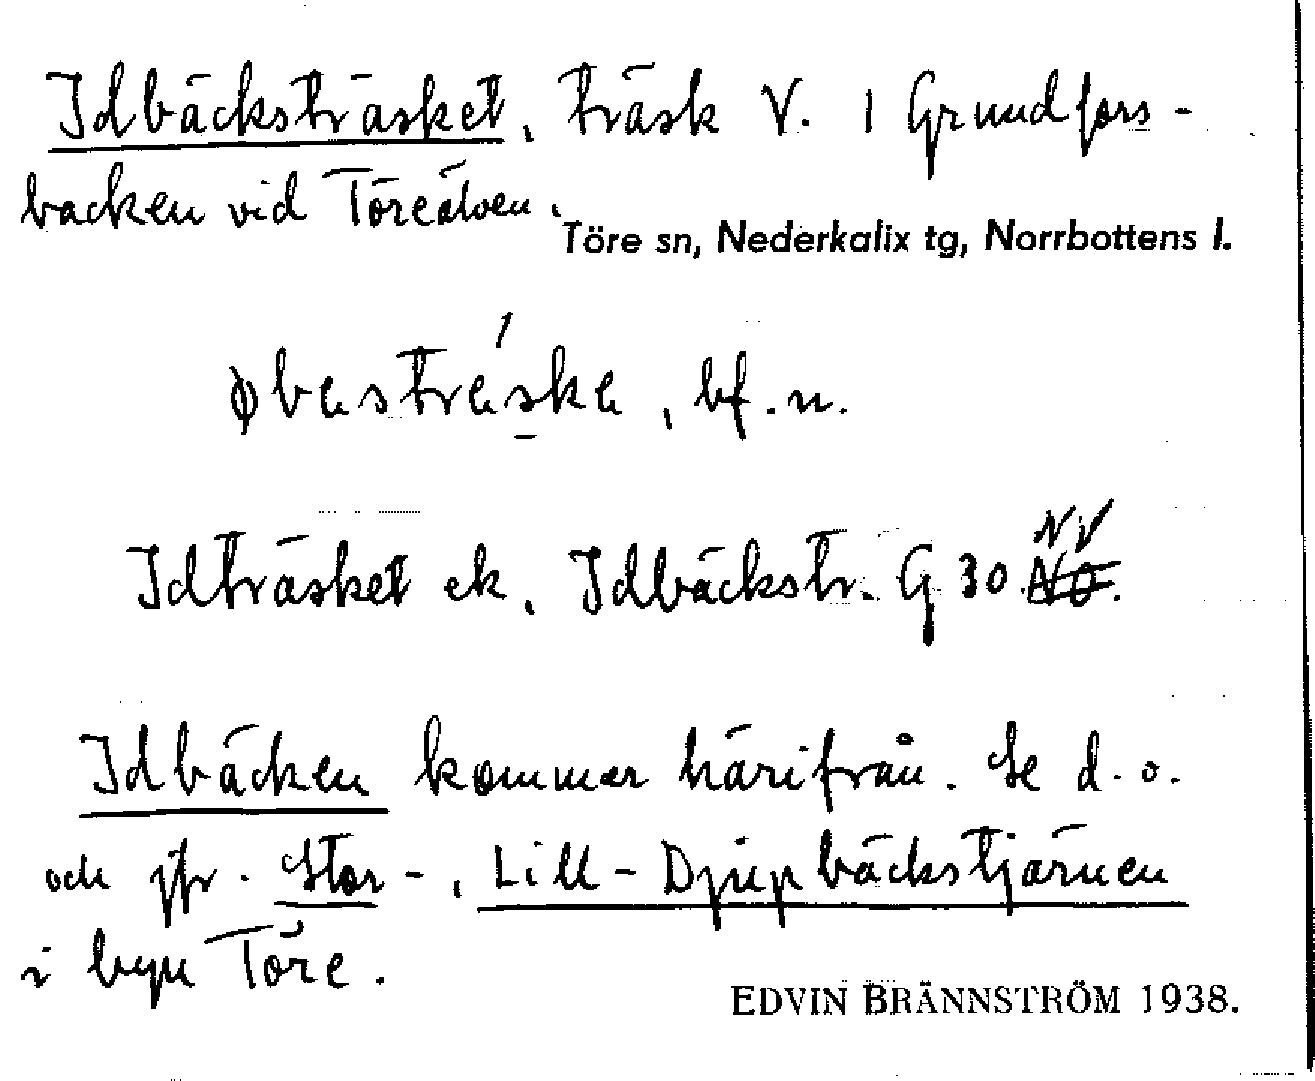 Idbäcksträsket, träsk V. i Grundfors-
backen vid Töreälven.
Töre sn, Nederkalix tg, Norrbottens l.
bf. n.
Idträsket ek, Idbäckstr. G 30 NV NO.
Idbäcken kommer härifrån. Se d. o.
och jfr. Stor-, Lill-Djupbäckstjärnen
i byn Töre.
EDVIN BRÄNNSTRÖM 1938.